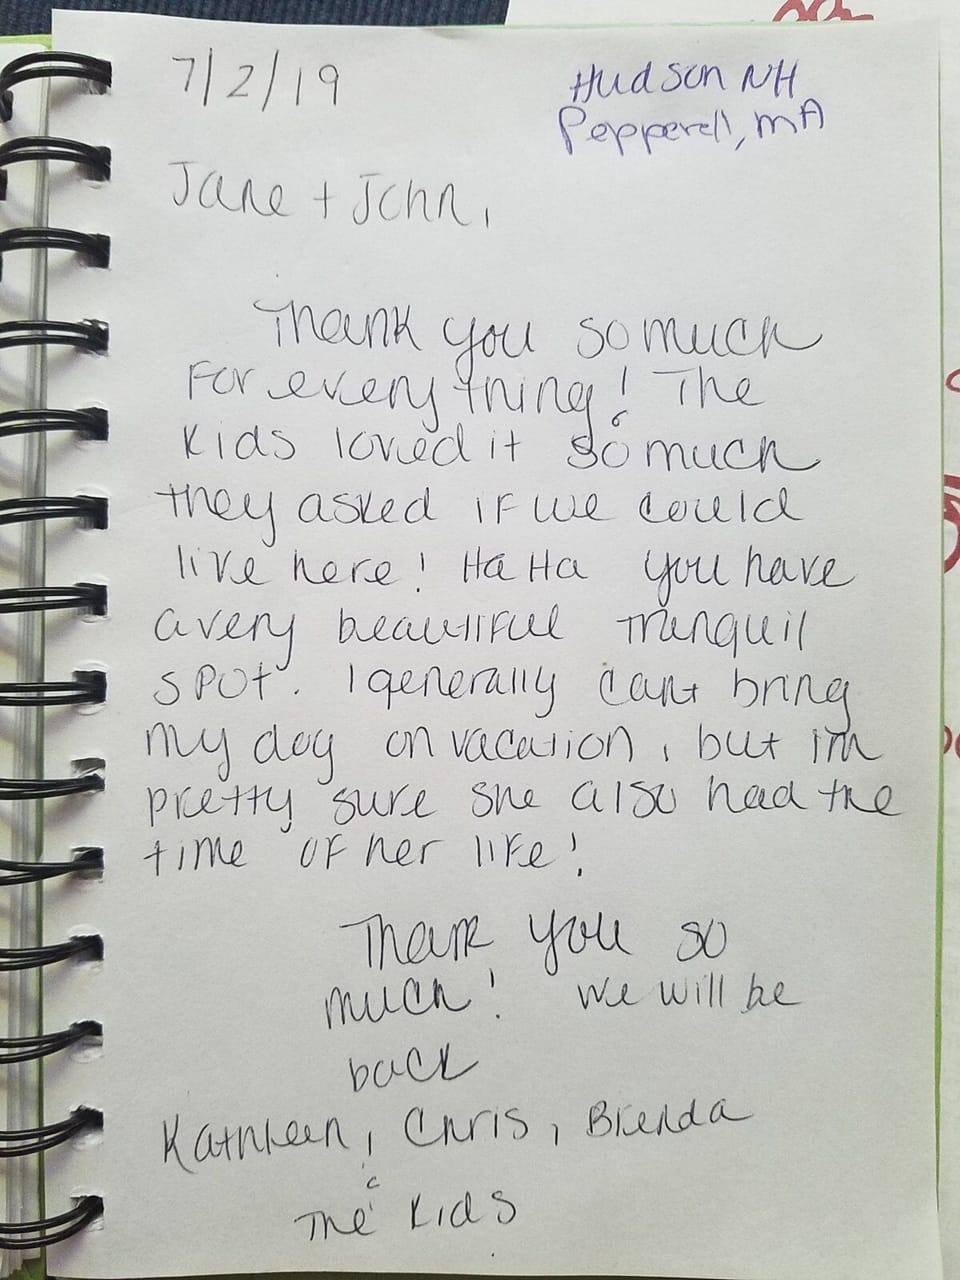 7/2/19
Hudson NH
Pepperell, MA
Jane + John,
Thank you so much
for everything! The
kids loved it so much
they asked if we could
live here! Ha Ha you have
a very beautiful tranquil
spot. I generally cant bring
my dog on vacation, but im
pretty sure she also had the
time of her life!
Thank you so
much! We will be
back
Kathleen, Chris, Brenda
&
The Kids